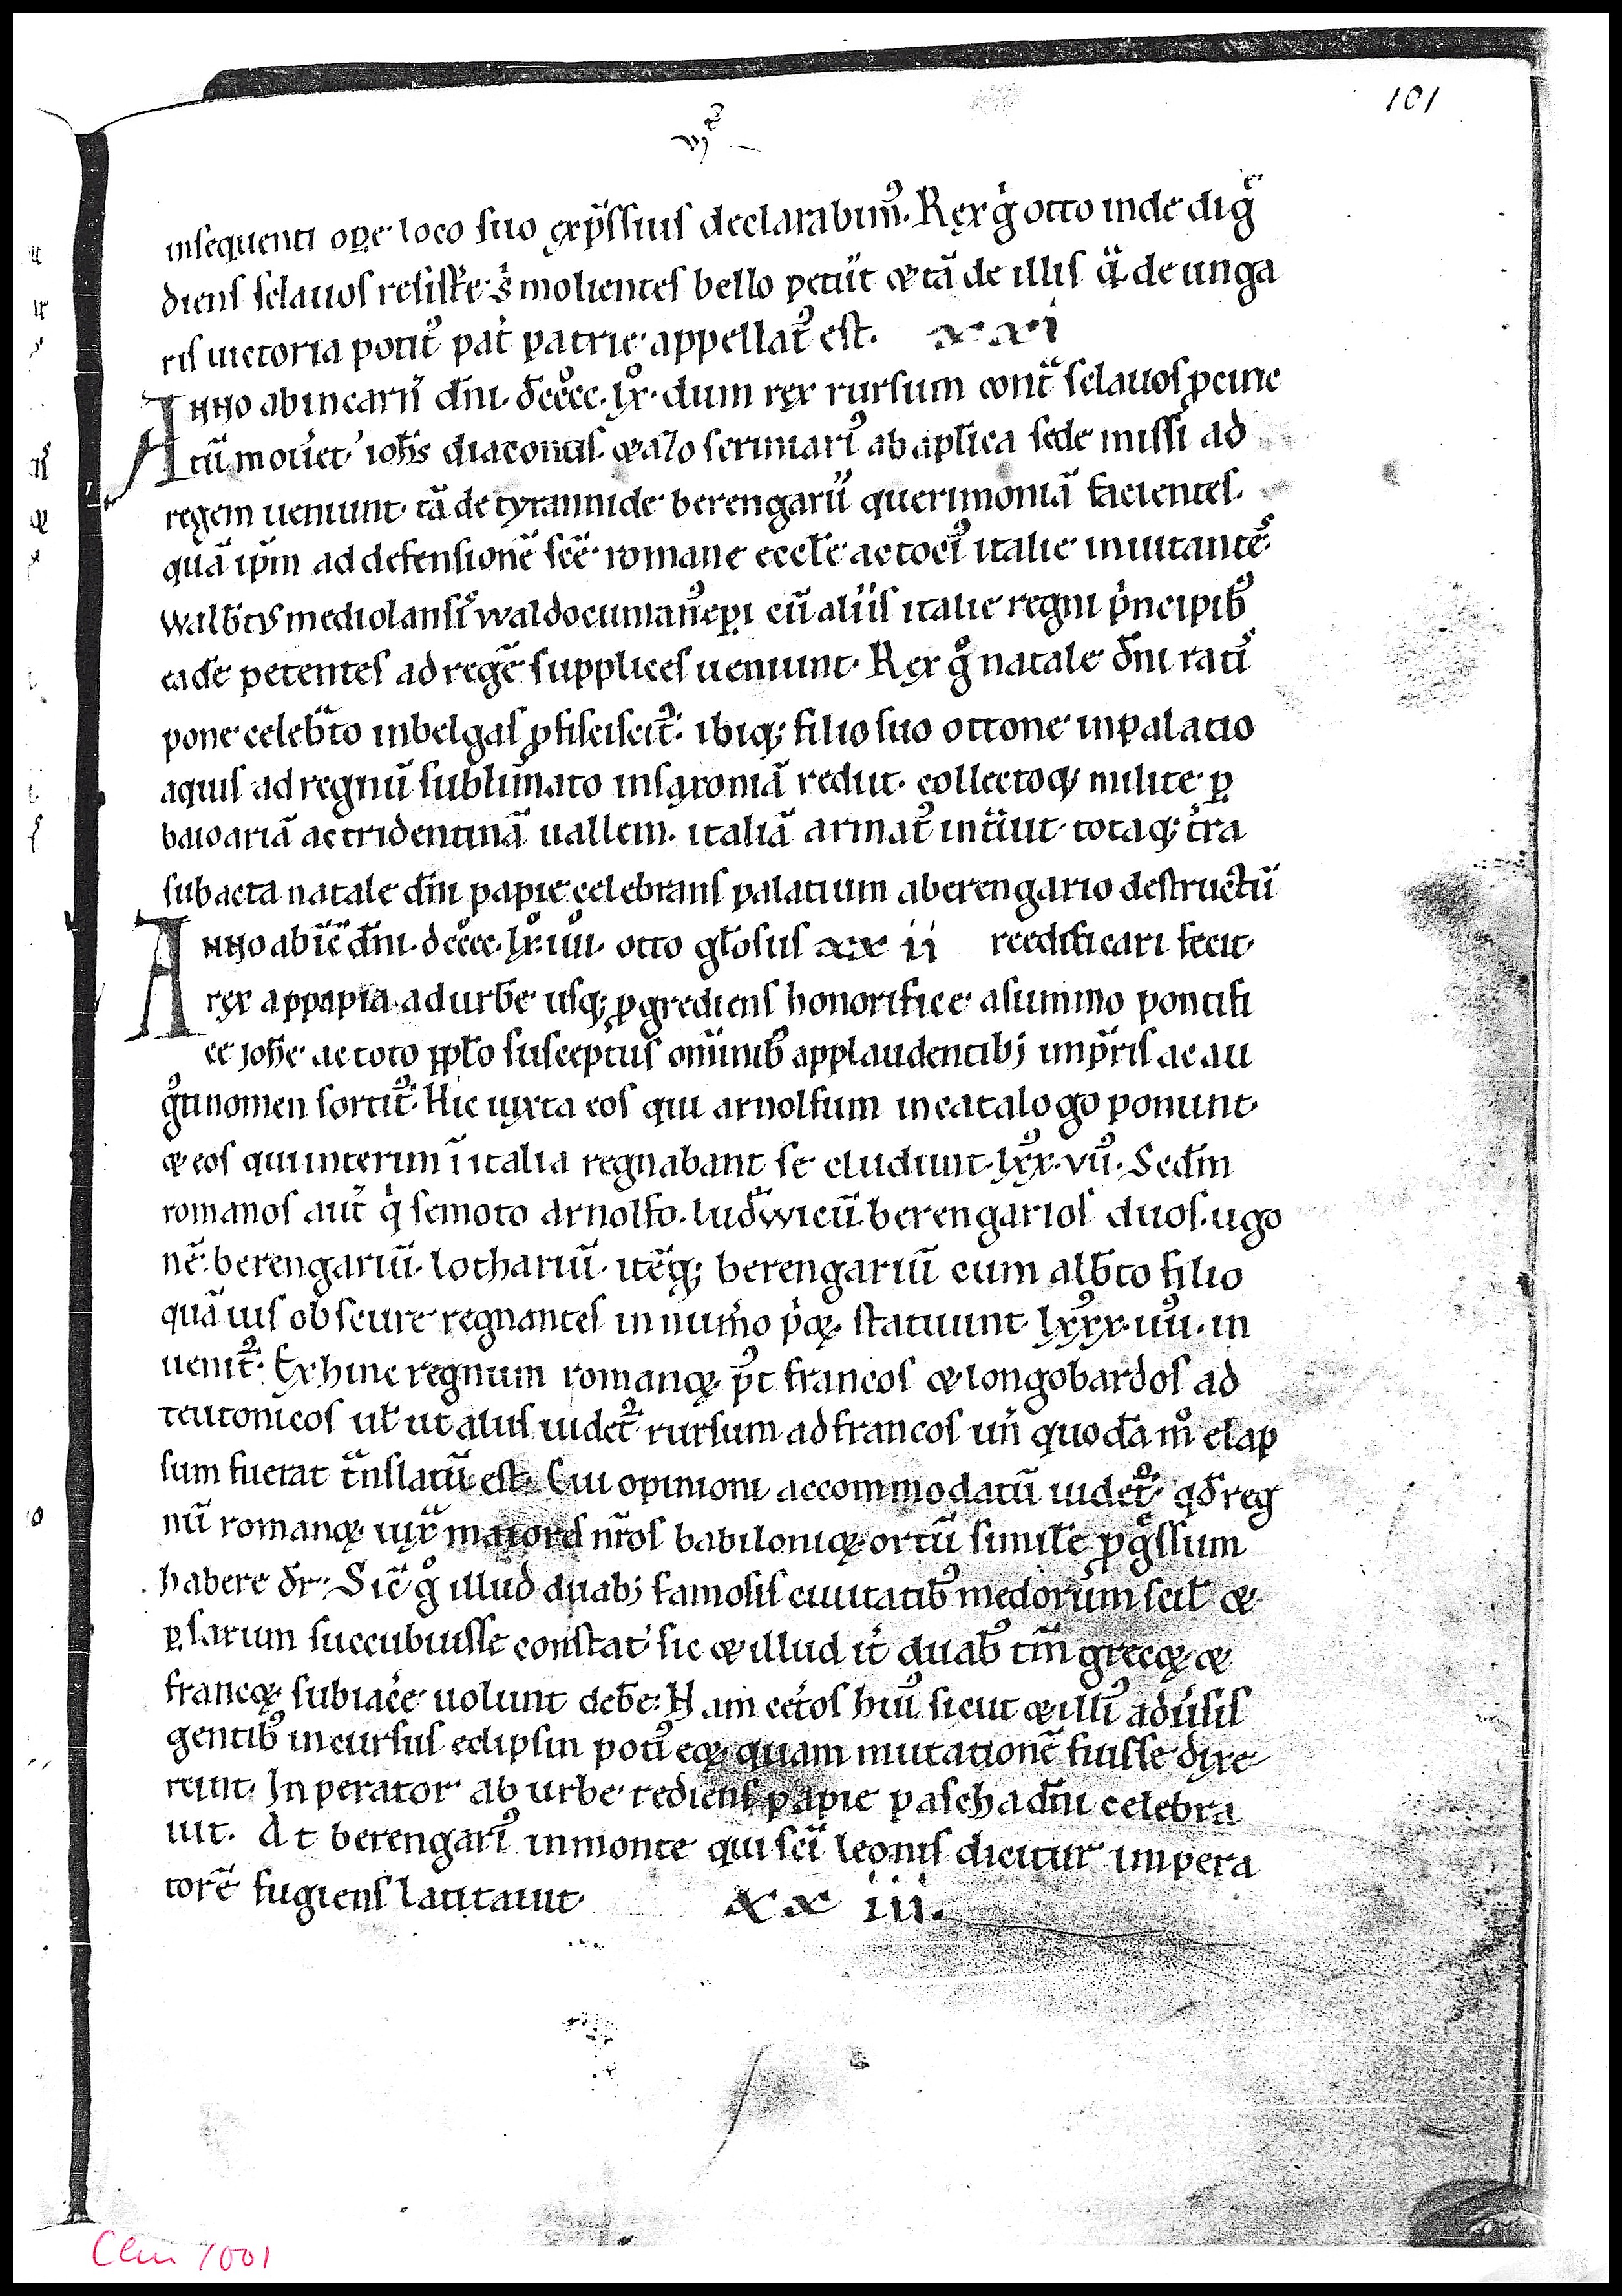 101
vi
insequenti op̲e loco suo exp̄ssius declarabim᷒. Rex gͥ otto inde digͣ
diens sclauos resistͤe s; molientes bello petiit ⁊ tā de illis qͣ de unga
ris uictoria potit᷒ pat̉ patrie appellat᷒ est. xxi
Anno ab incarn̄ dn̄i. dcccc. lx. dum rex rursum contͣ sclauos p̲cinc
tū mouet̉ ioh̄s diaconus. ⁊ azo scriniari᷒ ab aplica sede missi ad
regem ueniunt. tā de tyrannide berengarii querimoniā facientes.
quā ip̄m ad defensionē scē romane eccle ac toci᷒ italie inuitantes.
walb̄tus mediolansis waldo cuman᷒ ep̲i cū aliis italie regni pͥncipib᷒
eadē petentes ad regē supplices ueniunt. Rex gͦ natale dn̄i ratis
pone celebͣto in belgas p̲ficiscit᷒. ibiq; filio suo ottone in palatio
aquis ad regnū sublimato in saxoniā rediit. collectoq; milite p̲
baioariā ac tridentinā uallem. italiā armat᷒ intͣuit. totaq; t̉ra
subacta natale dn̄i papie celebrans palatium a berengario destructū
Anno ab īc̄ dn̄i. dcccc. lx. iiii. otto gl̄osus xx ii reedificari fecit.
rex a p papia ad urbē usq; p̲grediens honorifice a summo pontifi
ce joh̄e ac toto pp̄lo susceptus omnib᷒ applaudentibj imp̄ris ac au
gͦti nomen sortit᷒. Hic iuxta eos qui arnolfum in catalogo ponunt
⁊ eos qui interim ī italia regnabant secludunt. lxx. vii᷒. Sedm
romanos aut̄ qͥ semoto arnolfo. ludwicū. berengarios duos. ugo
nē. berengariū. lothariū. itēq; berengariū cum alb̄to filio
quāuis obscure regnantes in num̉o pͥoꝝ statuunt. lxxx. iiii᷒. in
uenit᷒. Exhinc regnum romanoꝝ p᷒t francos ⁊ longobardos ad
teutonicos ul̄ ut aliis uidet᷒ rursum ad francos un̄ quodā mͦ elap
sum fuerat tͣnslatū est. Cui opinioni accommodatū uidet᷒. qd̄ reg
nū romanoꝝ iuxͣ maiores nr̄os babilonioꝝ ortū similē p̲gͣssum
habere dr̄. Sic̄ gͦ illud duabj famosis ciuitatib᷒ medorum scil̄ ⁊
p̲sarum succubuisse constat. sic ⁊ illud it̉ duab᷒ tm̄ grecoꝝ ⁊
francoꝝ subiac̉e uolunt deb̄e. Nam cet̉os hui᷒ sicut ⁊ illi᷒ aduͥsis
gentib᷒ incursus eclipsin poti᷒ eoꝝ quam mutationē fuisse dixe
runt. Inperator ab urbe rediens papie pascha dn̄i celebra
uit. At berengari᷒ in monte qui sc̄i leonis dicitur impera
torē fugiens latitauit. xx iii.
Clm 1001